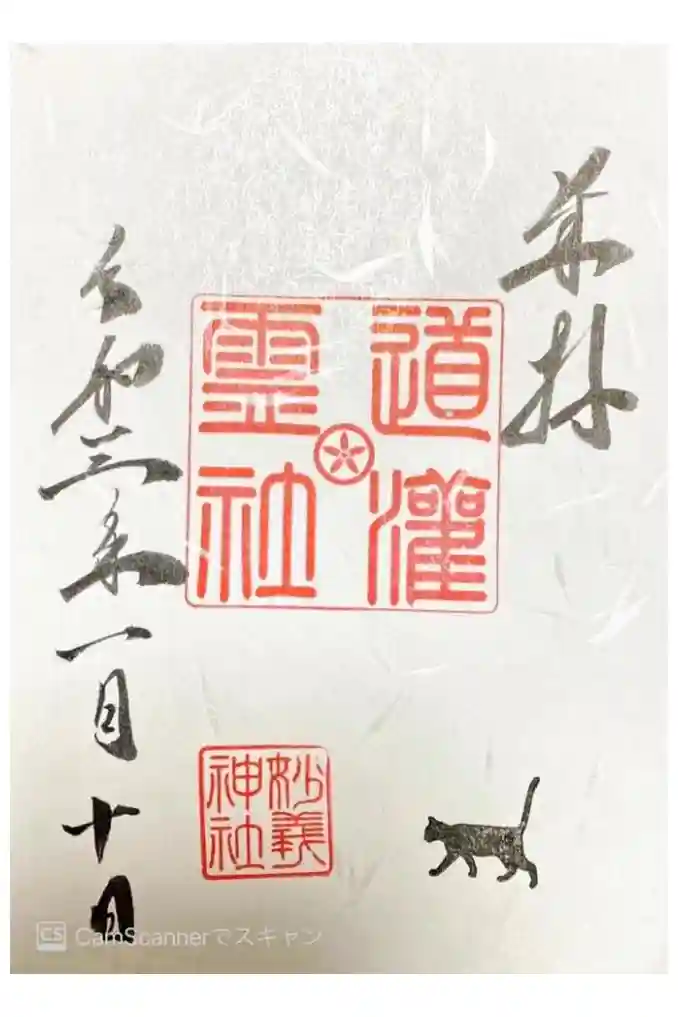 奉拝
道灌
霊社
妙義
神社
令和三年一月十日
CS CamScannerでスキャン